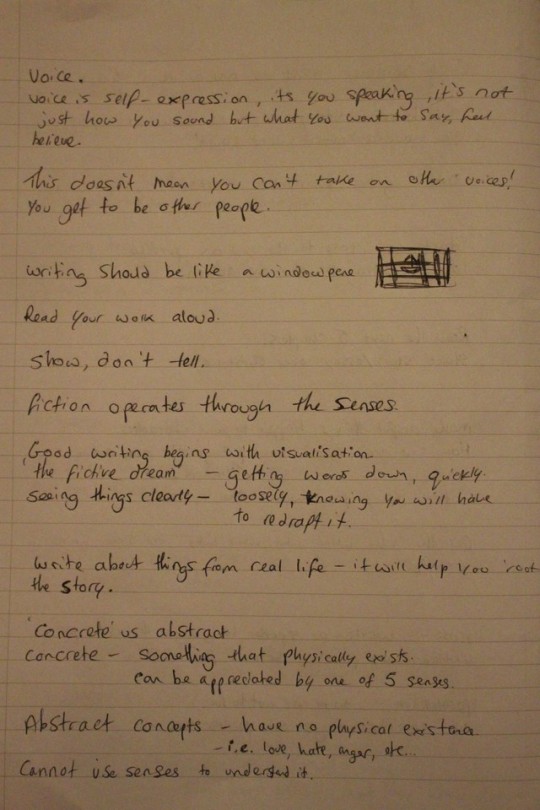 Voice.
Voice is self-expression, its you speaking, it's not
just how you sound but what you want to say, feel
believe.
This doesn't mean you can't take on other voices!
You get to be other people.
Writing should be like a windowpane
Read your work aloud.
Show, don't tell.
Fiction operates through the senses.
Good writing begins with visualisation.
'the fictive dream' - getting words down, quickly.
Seeing things clearly - loosely, knowing you will have
to redraft it.
Write about things from real life - it will help you 'root'
the story.
'Concrete' vs abstract
Concrete - something that physically exists.
can be appreciated by one of 5 senses.
Abstract concepts - have no physical existence
- i.e. love, hate, anger, etc...
Cannot use senses to understand it.